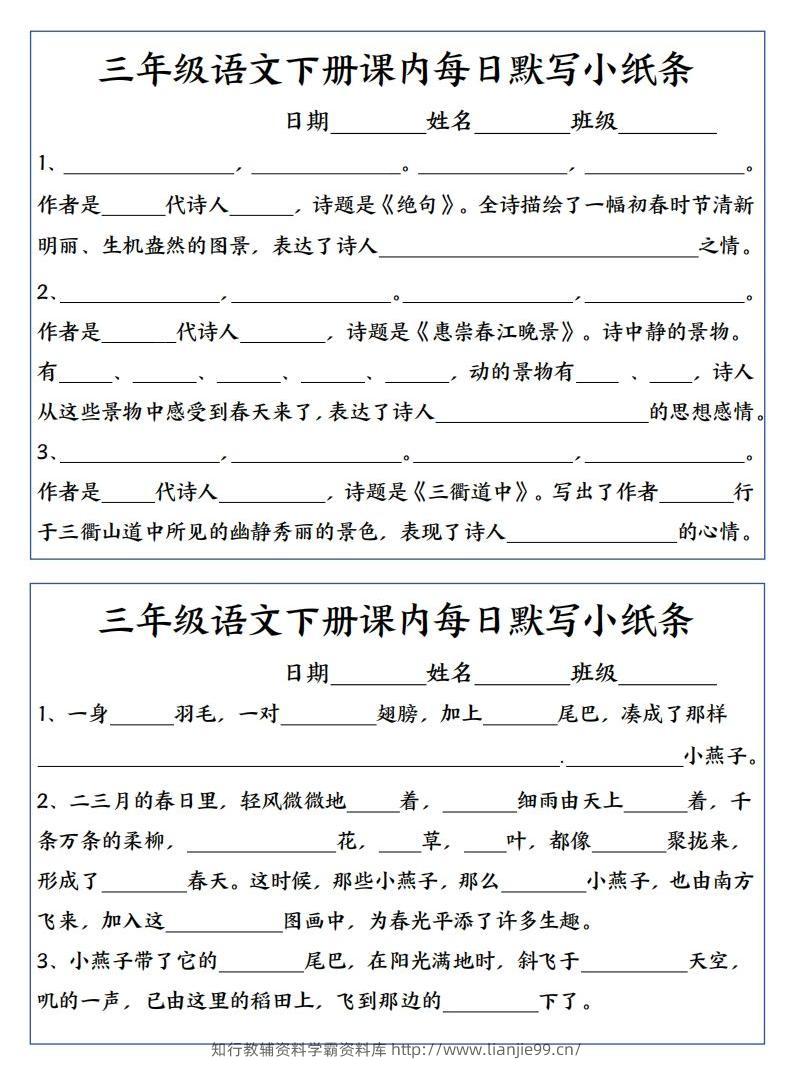 三年级语文下册课内每日默写小纸条
日期________姓名________班级________
1、________________，______________。______________，________________。
作者是______代诗人______，诗题是《绝句》。全诗描绘了一幅初春时节清新
明丽、生机盎然的图景，表达了诗人______________________________之情。
2、_______________，_______________。________________，_______________。
作者是_______代诗人________，诗题是《惠崇春江晚景》。诗中静的景物。
有_____、______、______、______、______，动的景物有____ 、____，诗人
从这些景物中感受到春天来了，表达了诗人____________________的思想感情。
3、_______________，________________。_______________，_______________。
作者是_____代诗人__________，诗题是《三衢道中》。写出了作者_______行
于三衢山道中所见的幽静秀丽的景色，表现了诗人________________的心情。
三年级语文下册课内每日默写小纸条
日期________姓名________班级________
1、一身______羽毛，一对_________翅膀，加上_______尾巴，凑成了那样
_________________________________________________.___________小燕子。
2、二三月的春日里，轻风微微地_____着，_______细雨由天上______着，千
条万条的柔柳，______________花，____草，____叶，都像_______聚拢来，
形成了________春天。这时候，那些小燕子，那么________小燕子，也由南方
飞来，加入这___________图画中，为春光平添了许多生趣。
3、小燕子带了它的________尾巴，在阳光满地时，斜飞于__________天空，
叽的一声，已由这里的稻田上，飞到那边的_________下了。
知行教辅资料学霸资料库 http://www.lianjie99.cn/